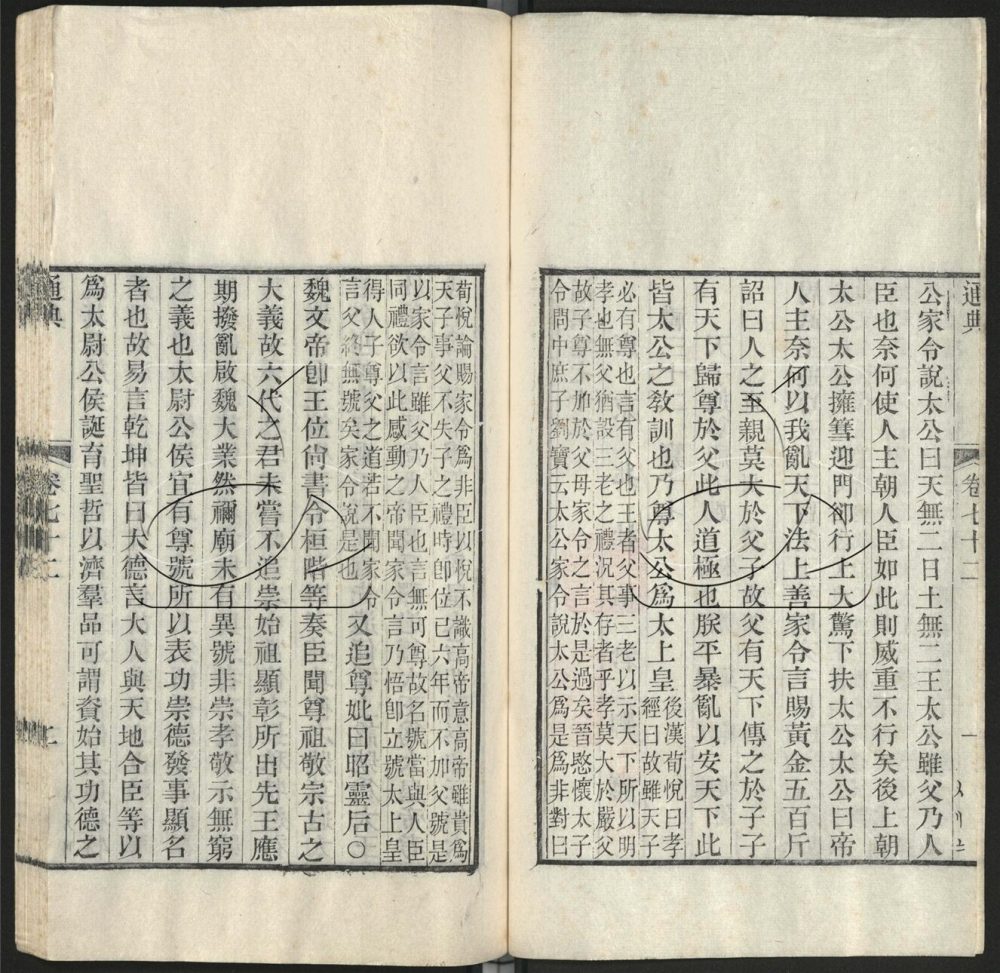 通典
卷七十二
一
公家令說太公曰天無二日土無二王太公雖父乃人
臣也奈何使人主朝人臣如此則威重不行矣後上朝
太公太公擁篲迎門卻行上大驚下扶太公太公曰帝
人主奈何以我亂天下法上善家令言賜黃金五百斤
詔曰人之至親莫大於父子故父有天下傳之於子子
有天下歸尊於父此人道極也朕平暴亂以安天下此
皆太公之敎訓也乃尊太公爲太上皇
後漢荀悅曰孝
經曰故雖天子
必有尊也言有父也王者父事三老以示天下所以明
孝也無父猶設三老之禮況其存者乎孝莫大於嚴父
故子尊不加於父母家令之言於是過矣晉愍懷太子
令問中庶子劉寶云太公家令說太公爲是爲非對曰
荀悅論賜家令爲非臣以悅不識高帝意高帝雖貴爲
天子事父不失子之禮時卽位已六年而不加父號是
以家令言雖父乃人臣也言無可尊故名號當與人臣
同禮欲以此感動之帝聞家令言乃悟卽立號太上皇
得人子尊父之道若不聞家令
言父終無號矣家令說是也
又追尊妣曰昭靈后○
魏文帝卽王位尙書令桓階等奏臣聞尊祖敬宗古之
大義故六代之君未嘗不追崇始祖顯彰所出先王應
期撥亂啟魏大業然禰廟未有異號非崇孝敬示無窮
之義也太尉公侯宜有尊號所以表功崇德發事顯名
者也故易言乾坤皆曰大德言大人與天地合臣等以
爲太尉公侯誕育聖哲以濟羣品可謂資始其功德之
通典
卷七十二